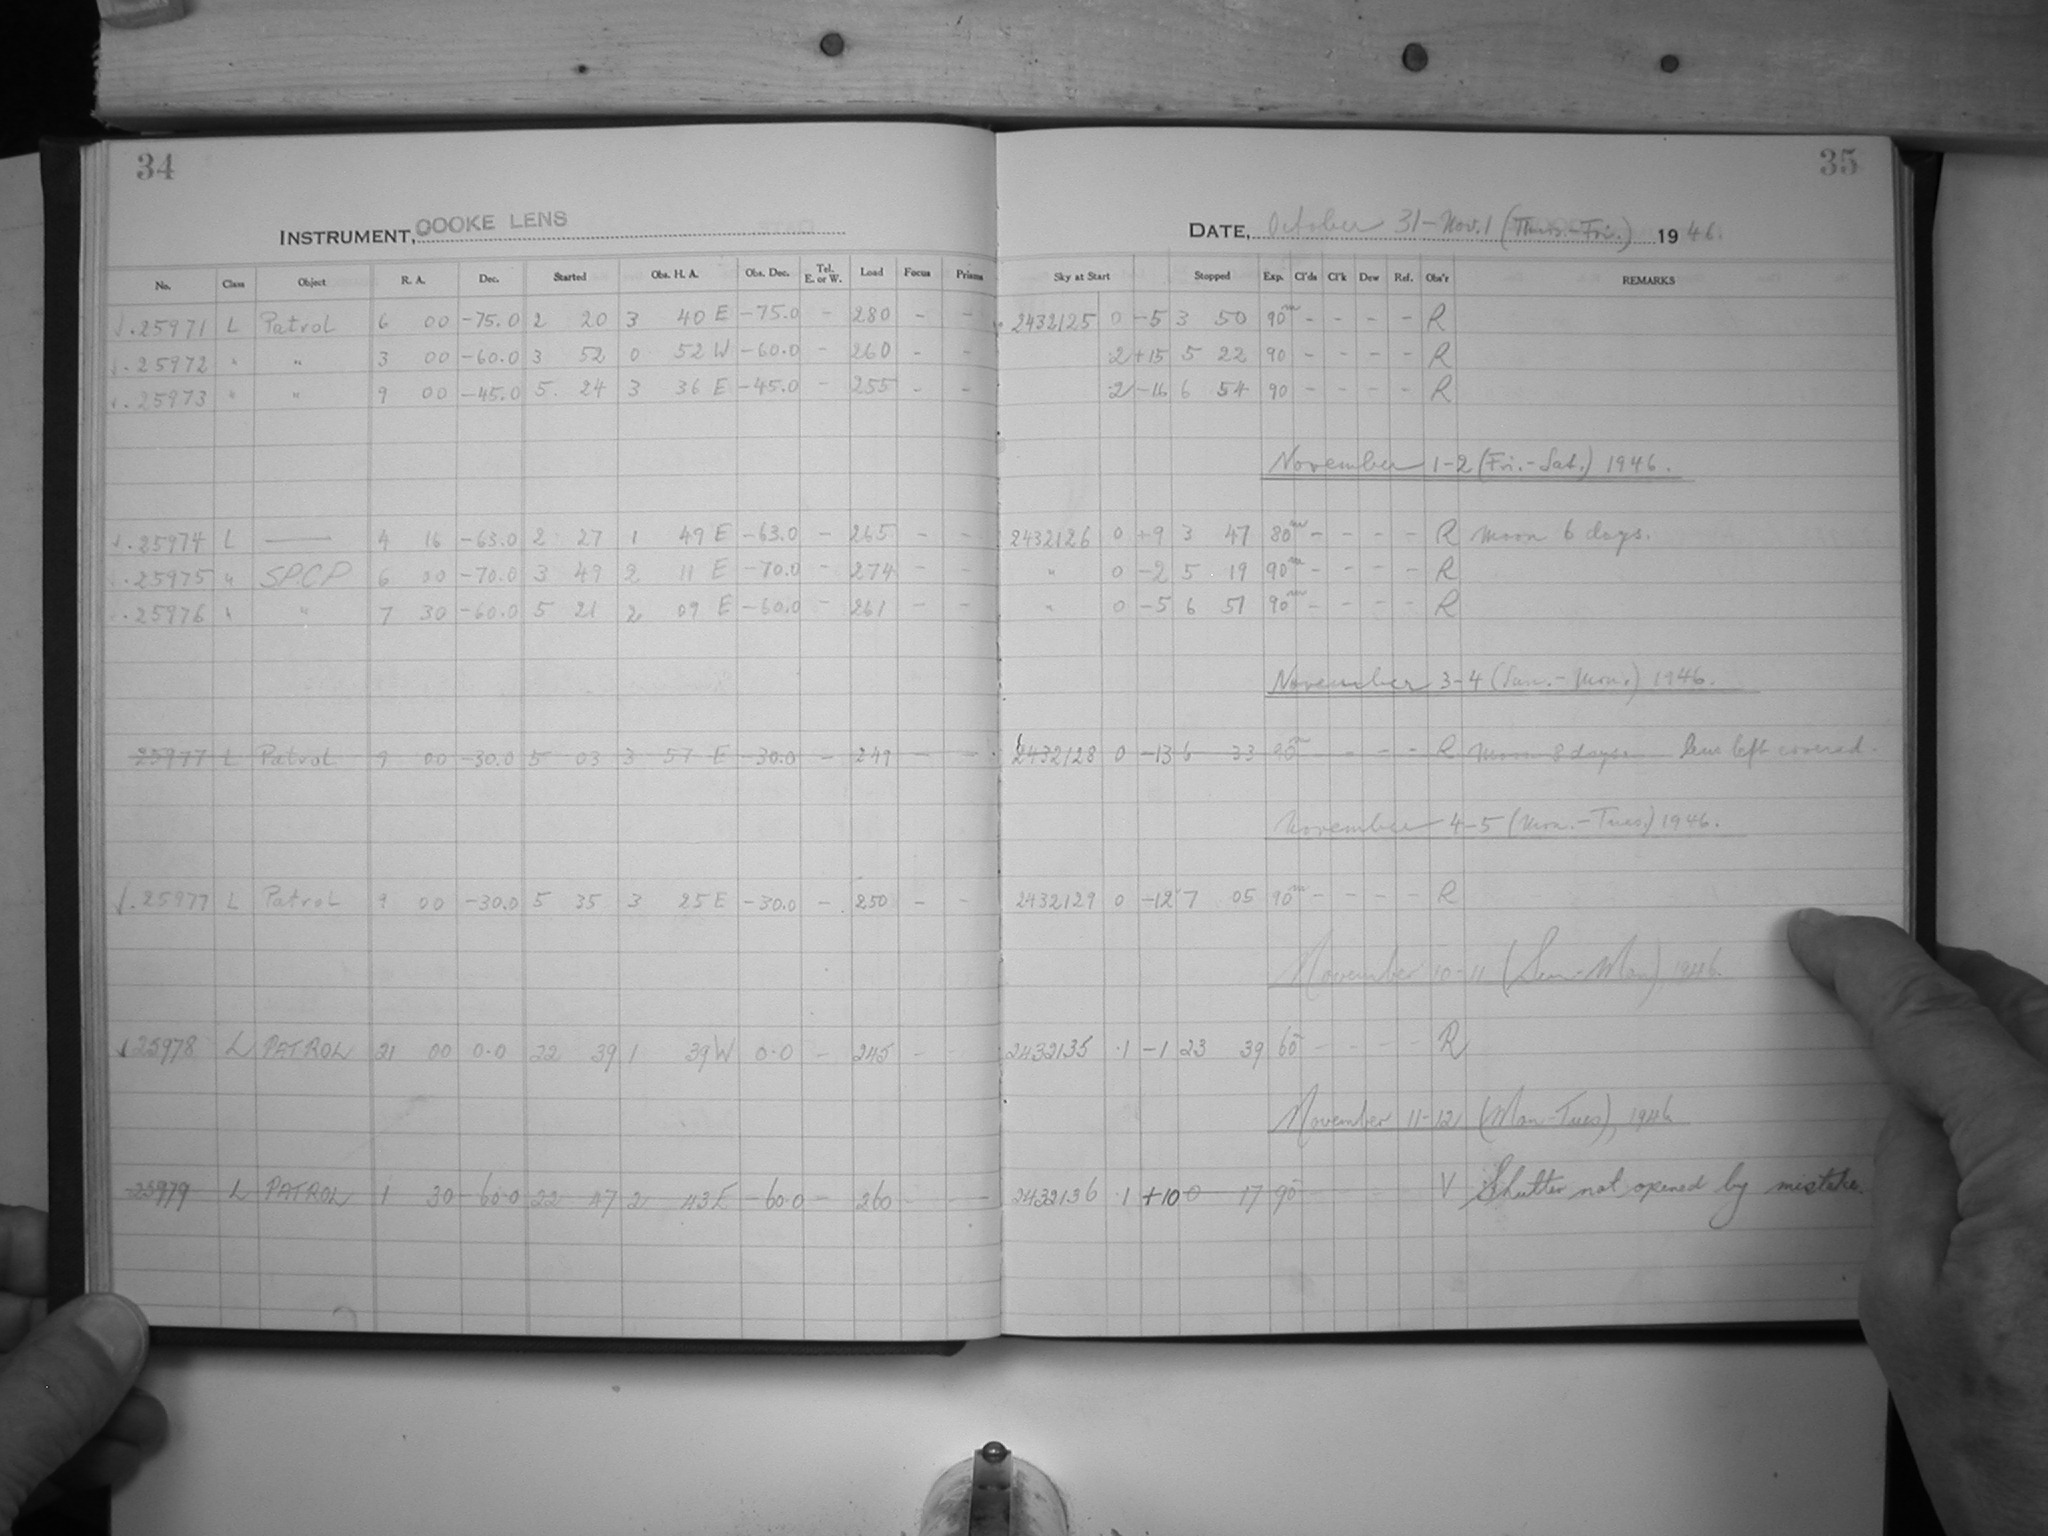 34
35
INSTRUMENT, COOKE LENS
DATE, October 31-Nov. 1 (Thurs.-Fri.) 1946.
No. Class Object R. A. Dec. Started Obs. H. A. Obs. Dec. Tel. E. or W. Load Focus Prisms Sky at Start Stopped Exp. Cl'ds Cl'k Dew Ref. Obs'r REMARKS
√.25971 L Patrol 6 00 -75.0 2 20 3 40 E -75.0 - 280 - - 2432125 0 -5 3 50 90m - - - - R
√.25972 " " 3 00 -60.0 3 52 0 52 W -60.0 - 260 - - .2 +15 5 22 90 - - - - R
√.25973 " " 9 00 -45.0 5 24 3 36 E -45.0 - 255 - - .2 -16 6 54 90 - - - - R
November 1-2 (Fri.-Sat.) 1946.
√.25974 L — 4 16 -63.0 2 27 1 49 E -63.0 - 265 - - 2432126 0 +9 3 47 80m - - - - R Moon 6 days.
√.25975 " SPCP 6 00 -70.0 3 49 2 11 E -70.0 - 274 - - " 0 -2 5 19 90m - - - - R
√.25976 " " 7 30 -60.0 5 21 2 09 E -60.0 - 261 - - " 0 -5 6 51 90m - - - - R
November 3-4 (Sun.-Mon.) 1946.
25977 L Patrol 9 00 -30.0 5 03 3 57 E -30.0 - 249 - - 2432128 0 -13 6 33 90m - - - - R Moon 8 days. lens left covered.
November 4-5 (Mon.-Tues.) 1946.
√.25977 L Patrol 9 00 -30.0 5 35 3 25 E -30.0 - 250 - - 2432129 0 -12 7 05 90m - - - - R
November 10-11 (Sun-Mon), 1946.
√25978 L PATROL 21 00 0.0 22 39 1 39 W 0.0 - 245 - - 2432135 .1 -1 23 39 60 - - - - R
November 11-12 (Mon-Tues), 1946
25979 L PATROL 1 30 -60.0 22 47 2 43 E -60.0 - 260 - - 2432136 .1 +10 0 17 90 V Shutter not opened by mistake.